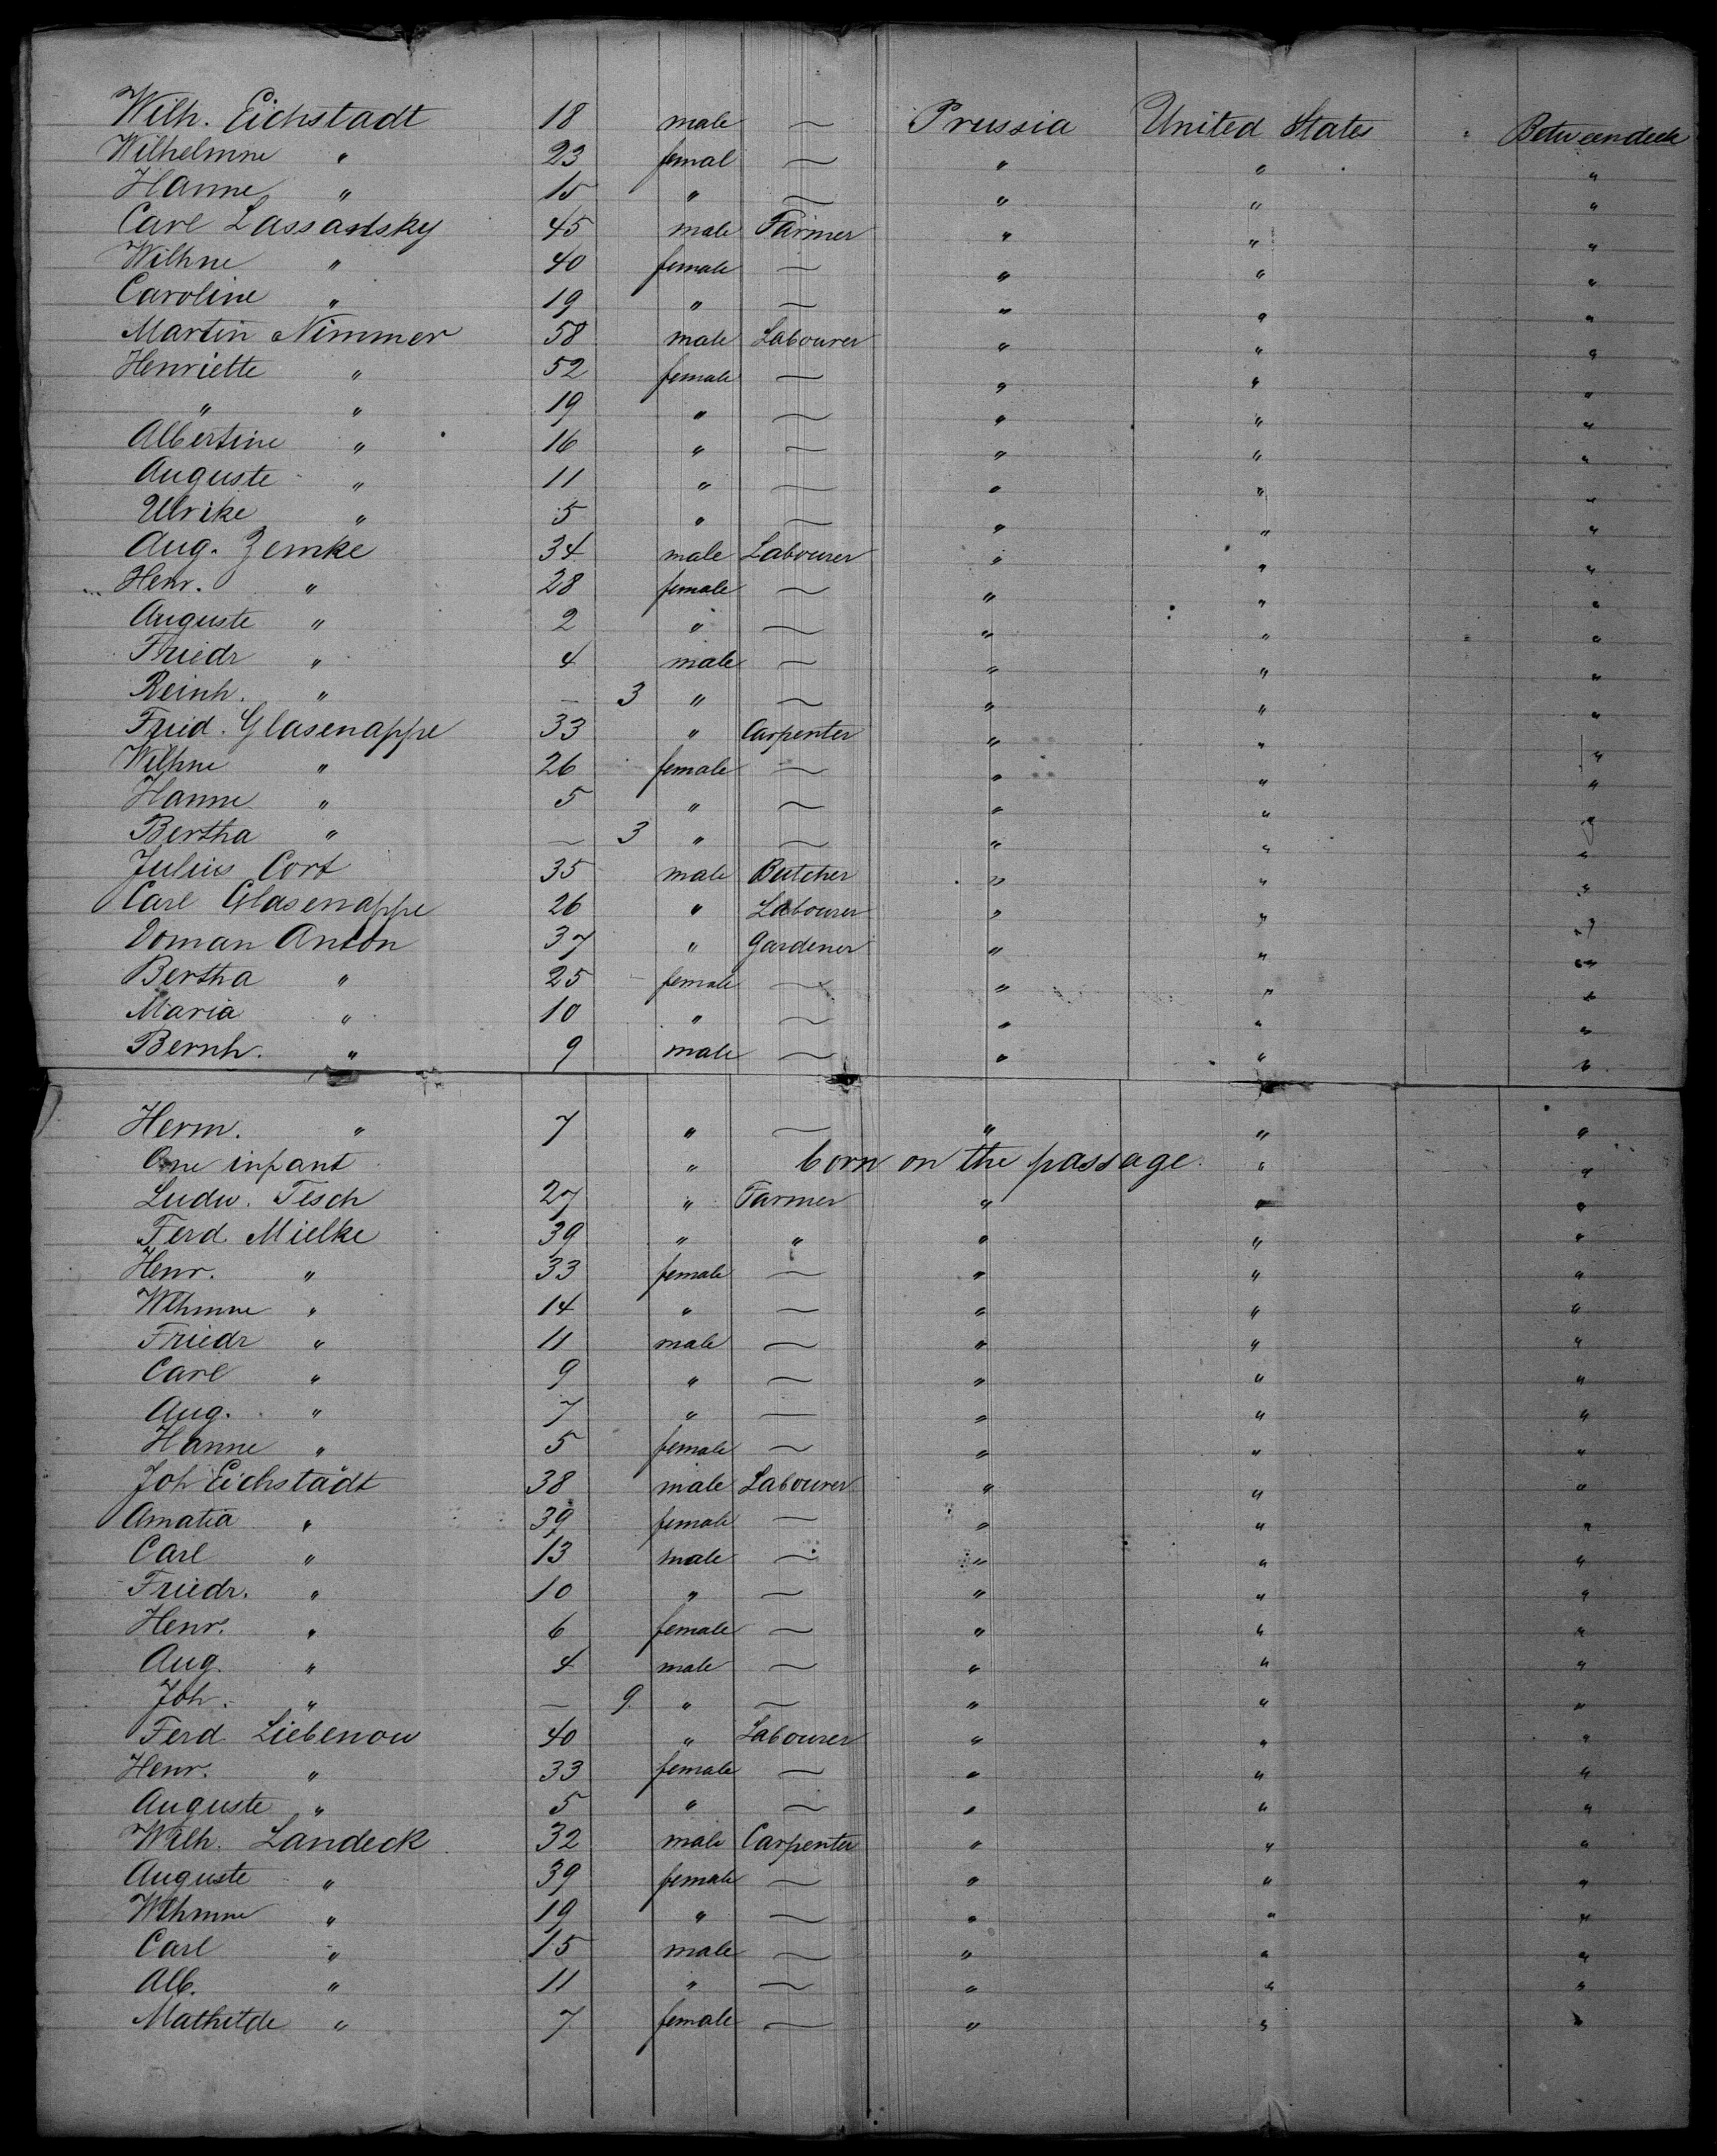 Wilh. Eichstadt 18 male — Prussia United States Betweendeck
Wilhelmne " 23 femal — " " "
Hanne " 15 " — " " "
Carl Lassadsky 45 male Farmer " " "
Wilhne " 40 female — " " "
Caroline " 19 " — " " "
Martin Nimmer 58 male Labourer " " "
Henriette " 52 female — " " "
" " 19 " — " " "
Albertine " 16 " — " " "
Auguste " 11 " — " " "
Ulrike " 5 " — " " "
Aug. Zemke 34 male Labourer " " "
Henr. " 28 female — " " "
Auguste " 2 " — " " "
Friedr " 4 male — " " "
Reinh. " — 3 " — " " "
Fried. Glasenappe 33 " Carpenter " " "
Wilhne " 26 female — " " "
Hanne " 5 " — " " "
Bertha " — 3 " — " " "
Julius Cort 35 male Butcher " " "
Carl Glasenappe 26 " Labourer " " "
Doman Anton 37 " Gardener " " "
Bertha " 25 female — " " "
Maria " 10 " — " " "
Bernh. " 9 male — " " "
Herm. " 7 " — " " "
One infant " born on the passage. " "
Ludw. Tesch 27 " Farmer " " "
Ferd. Mielke 39 " " " " "
Henr. " 33 female — " " "
Wlhmne " 14 " — " " "
Friedr " 11 male — " " "
Carl " 9 " — " " "
Aug. " 7 " — " " "
Hanne " 5 female — " " "
Joh Eichstädt 38 male Labourer " " "
Amalia " 39 female — " " "
Carl " 13 male — " " "
Friedr. " 10 " — " " "
Henr. " 6 female — " " "
Aug. " 4 male — " " "
Joh. " — 9 " — " " "
Ferd Liebenow 40 " Labourer " " "
Henr. " 33 female — " " "
Auguste " 5 " — " " "
Wilh. Landeck 32 male Carpenter " " "
Auguste " 39 female — " " "
Wlhmne " 19 " — " " "
Carl " 15 male — " " "
Alb. " 11 " — " " "
Mathilde " 7 female — " " "